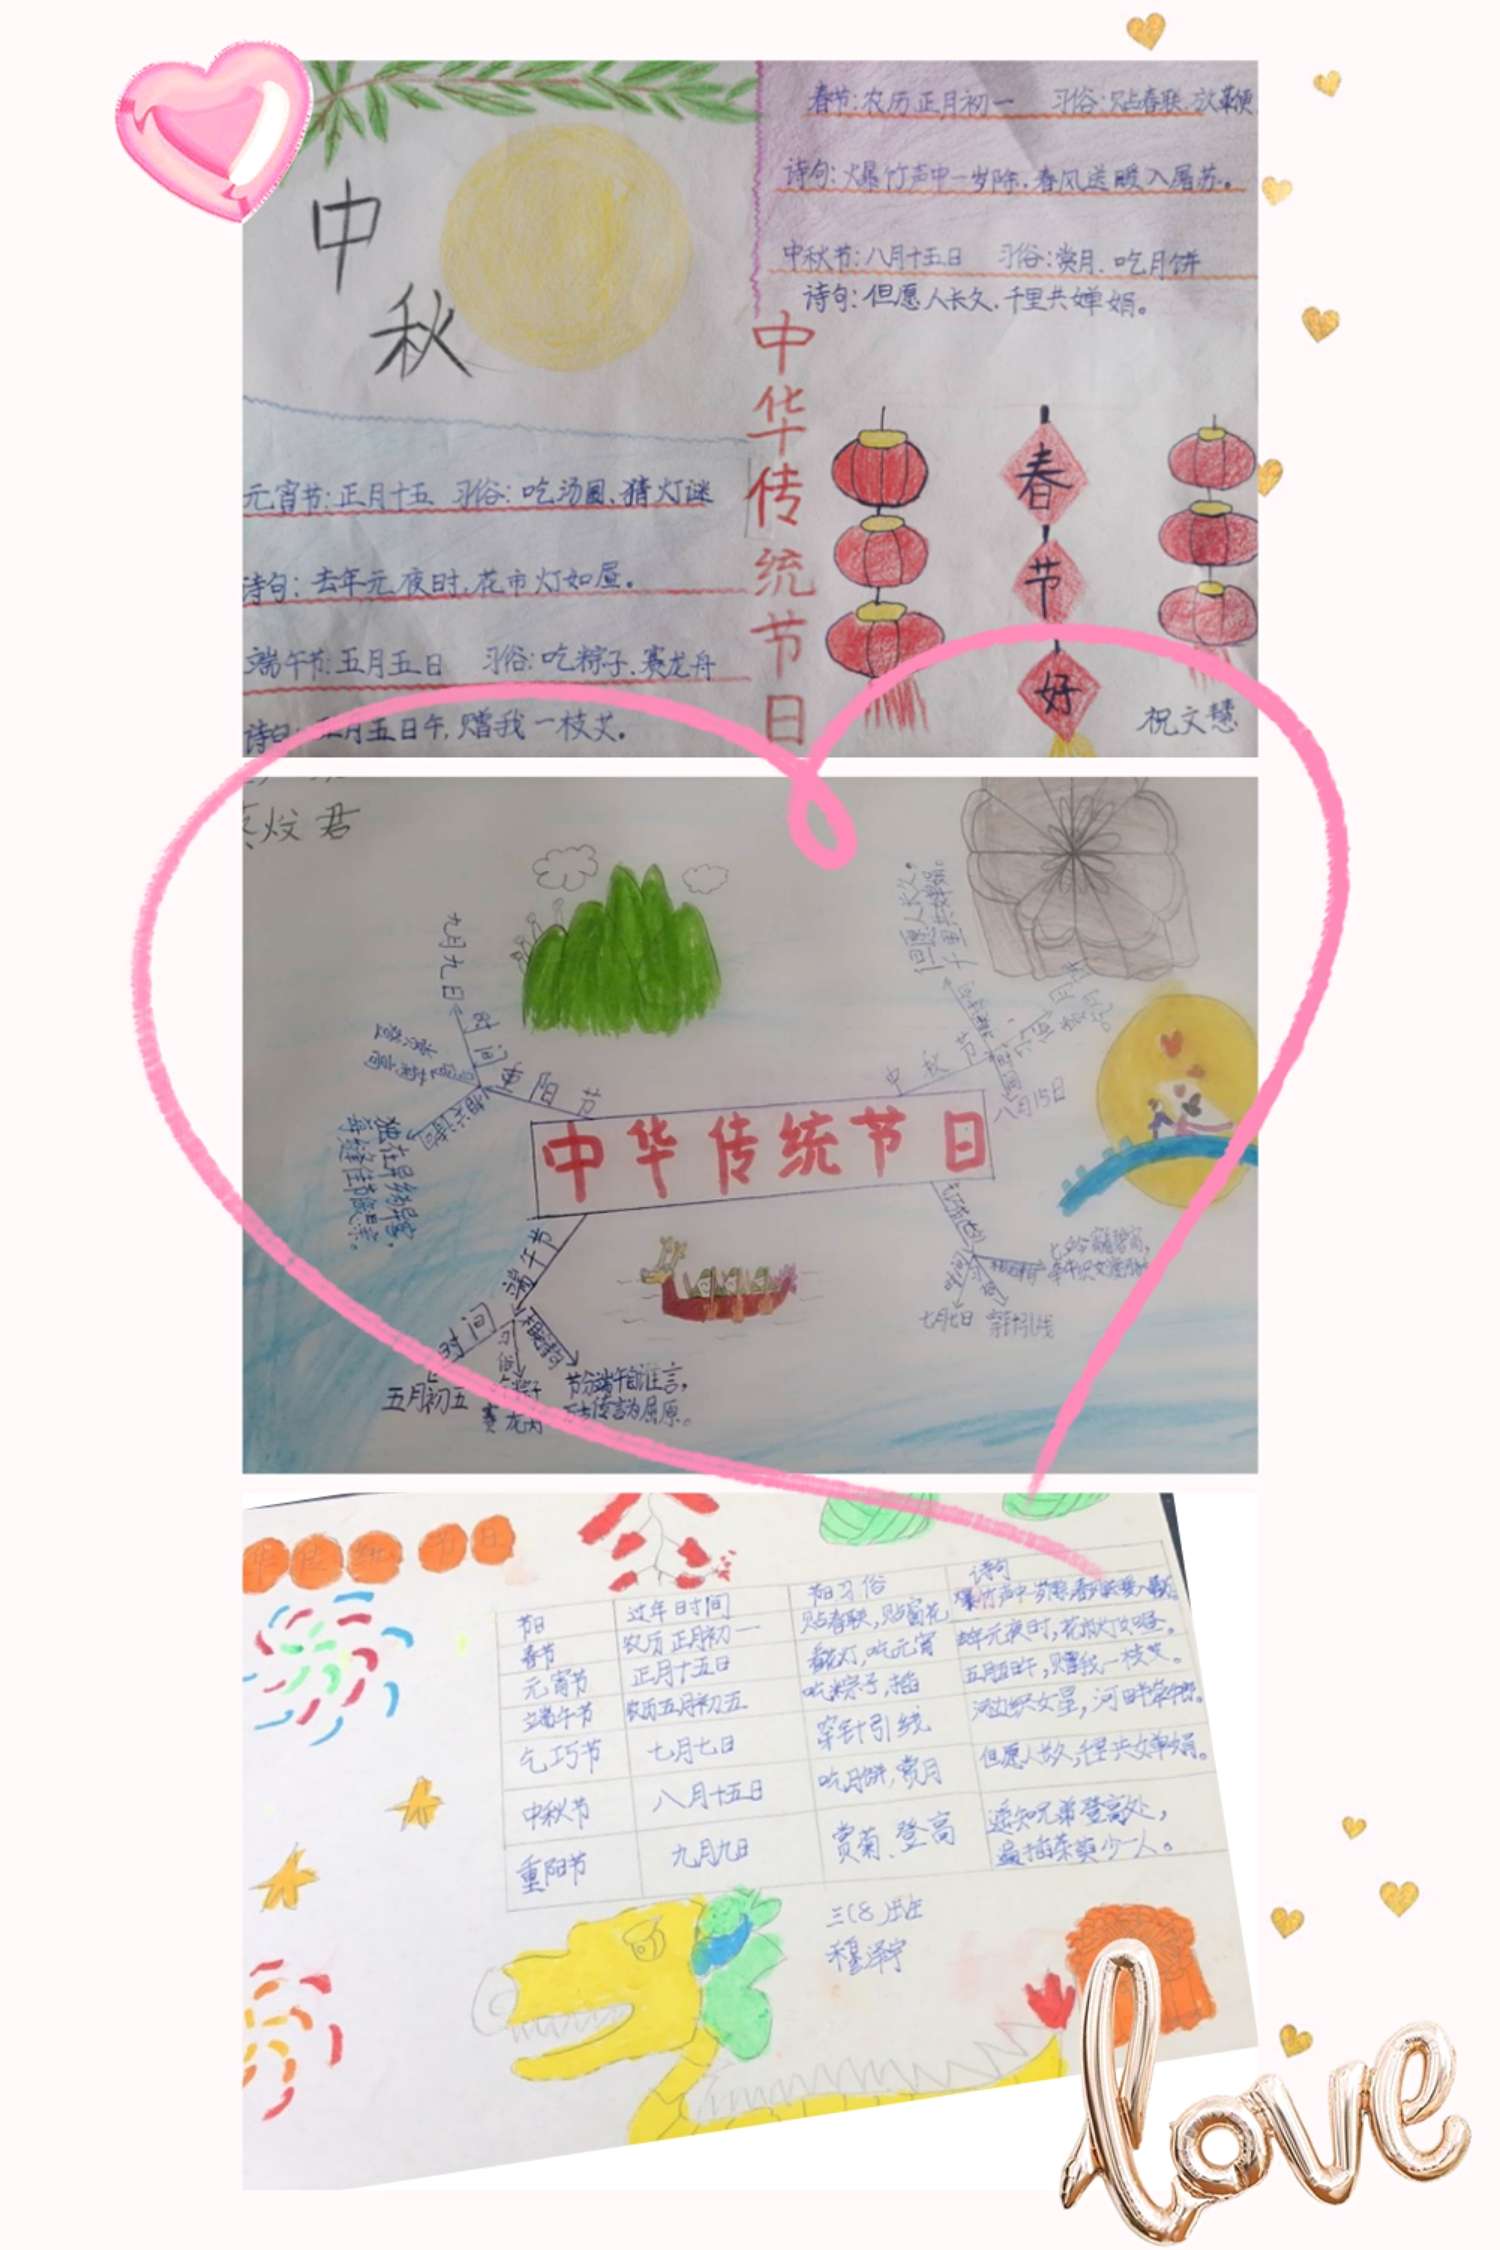 中
秋
春节:农历正月初一 习俗:贴春联、放鞭
诗句:爆竹声中一岁除,春风送暖入屠苏。
中秋节:八月十五日 习俗:赏月、吃月饼
诗句:但愿人长久,千里共婵娟。
中华传统节日
元宵节:正月十五 习俗:吃汤圆、猜灯谜
诗句:去年元夜时,花市灯如昼。
端午节:五月五日 习俗:吃粽子、赛龙舟
诗句:五月五日午,赠我一枝艾。
春
节
好
祝文慧
炆君
九月九日
时间
重阳节
独在异乡为异客,
每逢佳节倍思亲。
但愿人长久,
千里共婵娟。
中秋节
八月15日
中华传统节日
端午节
时间
五月初五
习俗
吃粽子
赛龙舟
节分端午自谁言,
万古传言为屈原。
时间
七月七日
习俗
穿针引线
七夕今宵看碧霄,
华传统节日
节日 过年日时间 节日习俗 诗句
春节 农历正月初一 贴春联,贴窗花 爆竹声中一岁除,春风送暖入屠苏
元宵节 正月十五日 看花灯,吃元宵 去年元夜时,花市灯如昼。
端午节 农历五月初五 吃粽子,插 五月五日午,赠我一枝艾。
乞巧节 七月七日 穿针引线 河边织女星,河畔牵牛郎。
中秋节 八月十五日 吃月饼,赏月 但愿人长久,千里共婵娟。
重阳节 九月九日 赏菊、登高 遥知兄弟登高处,
遍插茱萸少一人。
三(8)班
穆泽宇
love